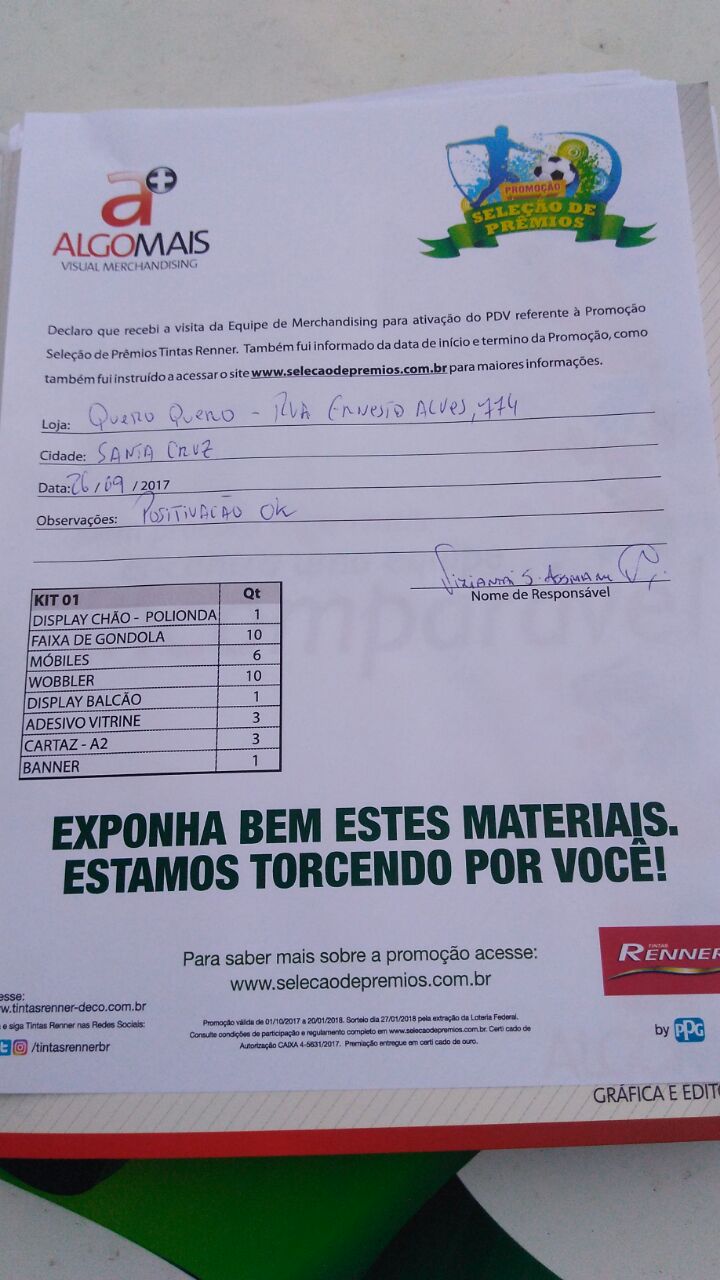 a+
ALGOMAIS
VISUAL MERCHANDISING
PROMOÇÃO
SELEÇÃO DE
PRÊMIOS
Declaro que recebi a visita da Equipe de Merchandising para ativação do PDV referente à Promoção
Seleção de Prêmios Tintas Renner. Também fui informado da data de início e termino da Promoção, como
também fui instruído a acessar o site www.selecaodepremios.com.br para maiores informações.
Loja: QUERO QUERO - RUA ERNESTO ALVES, 774
Cidade: SANTA CRUZ
Data: 26 / 09 / 2017
Observações: POSITIVAÇÃO OK
S. Assmann
Nome de Responsável
KIT 01 Qt
DISPLAY CHÃO - POLIONDA 1
FAIXA DE GONDOLA 10
MÓBILES 6
WOBBLER 10
DISPLAY BALCÃO 1
ADESIVO VITRINE 3
CARTAZ - A2 3
BANNER 1
EXPONHA BEM ESTES MATERIAIS.
ESTAMOS TORCENDO POR VOCÊ!
Para saber mais sobre a promoção acesse:
www.selecaodepremios.com.br
TINTAS
RENNER
esse:
w.tintasrenner-deco.com.br
e siga Tintas Renner nas Redes Sociais:
/tintasrennerbr
Promoção válida de 01/10/2017 a 20/01/2018. Sorteio dia 27/01/2018 pela extração da Loteria Federal.
Consulte condições de participação e regulamento completo em www.selecaodepremios.com.br. Certi cado de
Autorização CAIXA 4-5631/2017. Premiação entregue em certi cado de ouro.
by PPG
GRÁFICA E EDITO